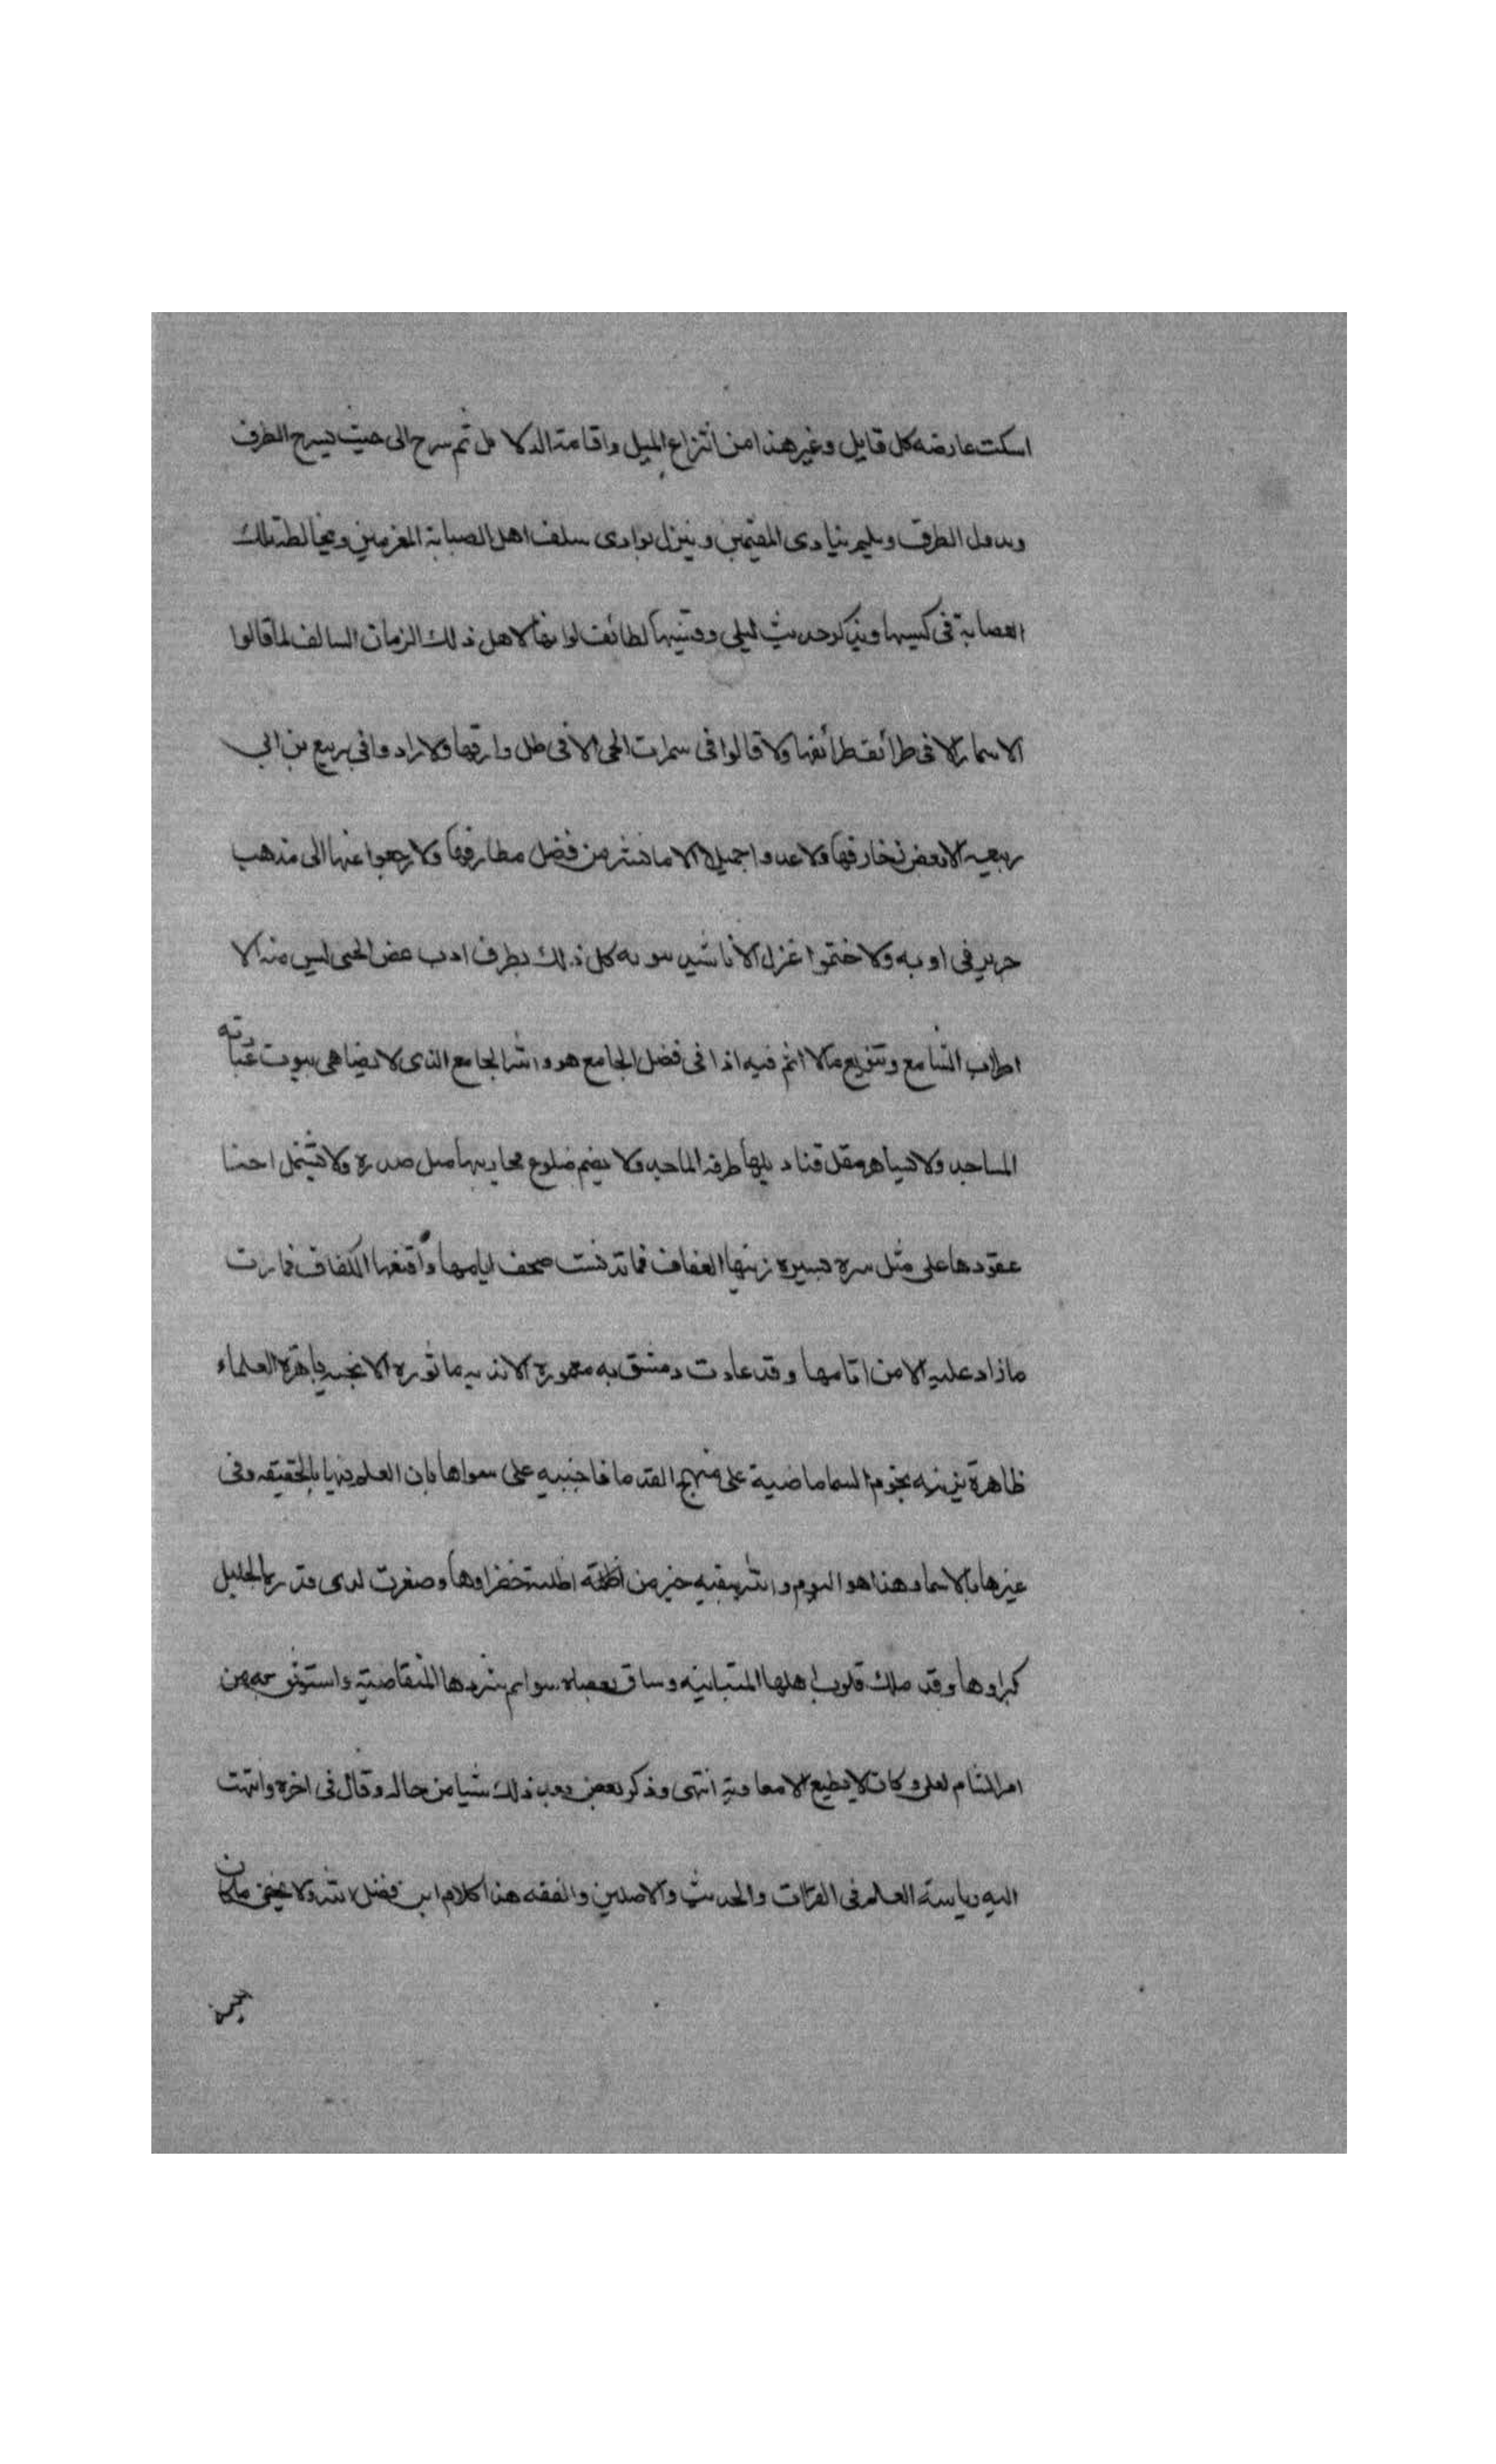 اسكت عارضه كل قايل وغير هذا من انتزاع الميل واقامة الدلايل ثم سرح الى حيث يسرح الطرف
الطرف ويليم بنادى المقيمين وينزل بوادى سلف اهل الصبابة المغرمين ومخالطة تلك
العصابة فى كيسها ويذكر حديث ليلى وقيسها لطائف لو لاهل ذلك الزمان السالف لما قالوا
الاسمار الا فى طرائف طرائفها ولا قالوا فى سمرات الحى الا فى ظل وارفها ولا اراد وافى ربيع بن ابى
ربيعه الا بعض زخارفها ولا عدوا جميلا الا ما نشر من فضل مطارفها ولا رجعوا عنها الى مذهب
جرير فى اوبه ولا ختموا غزل الا كل ذلك بطرف ادب غض الجنى ليس منه الا
اطراب السامع وتنويع ما لا اثم فيه اذا فى فضل الجامع هو والله الجامع الذى لا يضاهى بيوت عباداته
المساجد ولا تساهر مقل قناديلها طرفه الماجد ولا يضم ضلوع محاريبها مثل صدره ولا تشتمل احنا
عقودها على مثل سره سيره زينها العفاف فما تدنست صحف ايامها واقنعها الكفاف فما رات
ما زاد عليه الا من اثامها وقد عادت دمشق به معمورة الاندية ماثورة الانجية باهرة العلماء
ظاهرة بزينه نجوم السما ماضية على منهج القدما فاجنبيه على سواها بان العلم فيها بالحقيقه وفى
غيرها بالاسما وهذا هو اليوم والله يبقيه خير من اظلته اظلت خضراوها وصغرت لدى قدره الجليل
كبراوها وقد ملك قلوب اهلها المتباينه وساق بعصاه سوايم شردها المتقاصية واستوسق به من
امر الشام لعلى وكان لا يطيع الا معاوية انتهى وذكر بعض بعد ذلك شيا من حاله وقال فى اخره وانتهت
اليه رياسة العلم فى القرات والحديث والاصلين والفقه هذا كلام ابن فضل الله ولا يخفى ما كان